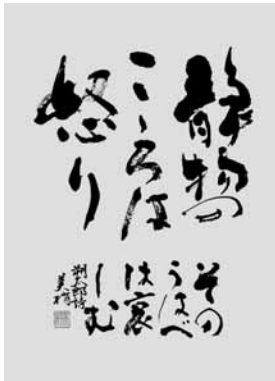 静物の
こゝろは
怒り
その
うはべ
は哀
しむ
朔太郎詩